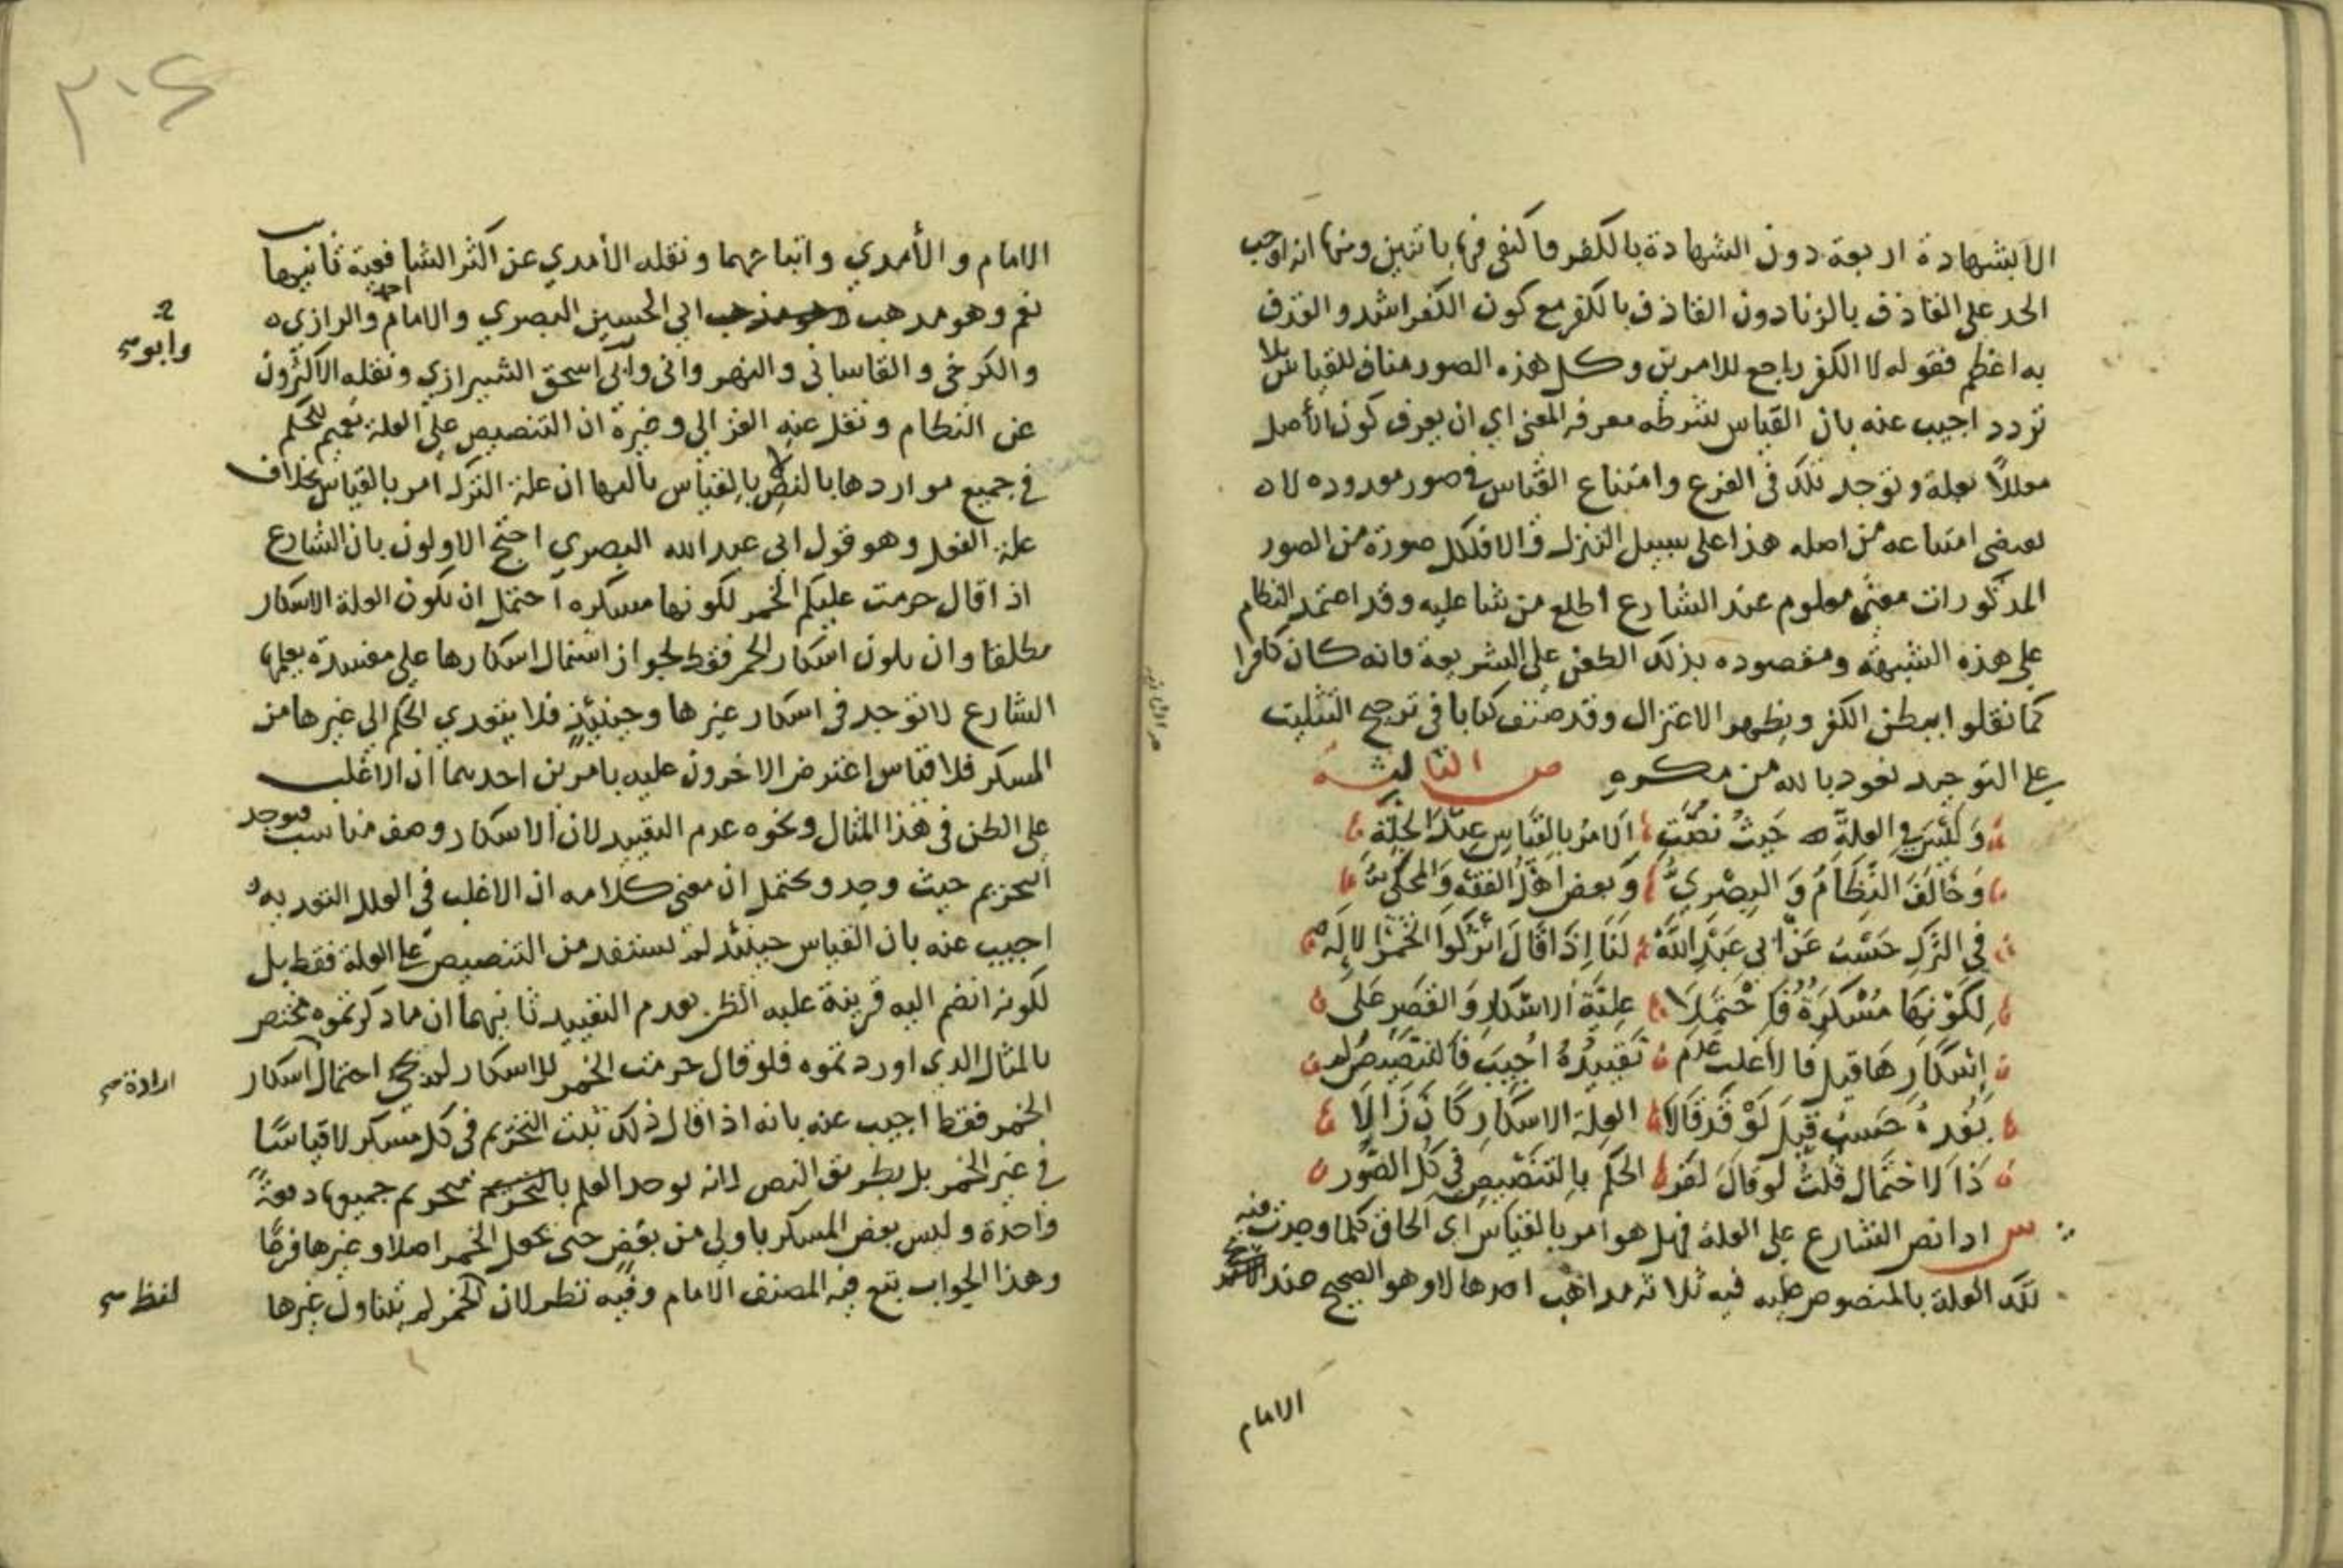 الا بشهادة اربعة دون الشهادة بالكفر فاكتفى فيها باثنين ومنها انه اوجب
الحد على القاذف بالزنا دون القاذف بالكفر مع كون الكفر اشد والقذف
به اعظم فقوله لا الكفر راجع للامرين وكل هذه الصور مناف للقياس بلا
تردد اجيب عنه بان القياس شرطه معرفة المعنى اي ان يعرف كون الأصل
معللاً بعلة وتوجد تلك في الفرع وامتناع القياس في صور معدوده لا
امتناعه من اصله هذا على سبيل التنزل والا فلكل صورة من الصور
المذكورات معنى معلوم عند الشارع اطلع من شا عليه وقد اعتمد النظام
على هذه الشبهة ومقصوده بذلك الطعن على الشريعة فانه كان كافرا
كما نقلوا يبطن الكفر ويظهر الاعتزال وقد صنف كتابا في ترجيح التثليث
على التوحيد نعوذ بالله من مكره ص الثالثة
وَلَيْسَ في العلة حَيثُ نُصَّتِ الامرُ بالقِيَاسِ عِنْدَ الجِلَّةِ
وَخَالَفَ النَّظَّامُ وَ البِصْرِيُّ وَ بعض اهل الفقه وَالمحكي
في التَركِ حَسْبُ عَنْ ابي عَبْدِ اللَّهْ لَنَا إِذَا قَالَ اتْرُكُوا الخَمْرَ
لِكَوْنِهَا مُسْكِرَةً فَاحْتَمَلَا عِلِّيَّةَ الاسْكَارِ وَ القَصرِ عَلَى
إِسْكَارِهَا قيل فالأغلب عدم تَقْيِيدُهُ اُجِيبَ فَالتنصِيصُ لم
يُفِدْهُ حَسْبُ قِيلَ لَوْ قَدْ قَالَا العِلة الاسكار كَانَ زَالَا
ذَا الاحْتِمَال قُلتُ لو قالَ لَقَد الحكم بِالتَنصِيصِ في كل الصُّور
س اذا نص الشارع على العلة فهل هو امر بالقياس اي الحاق كلما وجدت فيه
تلك العلة بالمنصوص عليه فيه ثلاثة مذاهب احدها لا وهو الصحيح عند
الامام
٢٠٤
الامام و الأمدي واتباعهما ونقله الأمدي عن اكثر الشافعية ثانيها
نعم وهو مذهب ابي الحسين البصري والامام احمد والرازي
وابو
والكرخي و القاساني و النهرواني وابي اسحق الشيرازي ونقله الاكثرون
عن النظام ونقل عنه الغزالي وغيره ان التنصيص على العلة تعميم للحكم
في جميع مواردها بالنص لا بالقياس ثالثها ان علة الترك امر بالقياس بخلاف
علة الفعل وهو قول ابي عبد الله البصري احتج الاولون بان الشارع
اذا قال حرمت عليكم الخمر لكونها مسكره احتمل ان تكون العلة الاسكار
مطلقا وان يكون اسكار الخمر فقط لجواز اشتمال اسكارها على مفسدة يعلمها
الشارع لا توجد في اسكار غيرها وحينيذٍ فلا يتعدي الحكم الي غيرها من
المسكر فلا قياس إعترض الاخرون عليه بامرين احدهما ان الاغلب
على الظن في هذا المثال ونحوه عدم التقييد لان الاسكار وصف مناسب فيوجد
التحريم حيث وجد ويحتمل ان معنى كلامه ان الاغلب في العلل التعديه
اجيب عنه بان القياس حينئذ لم نستفده من التنصيص على العلة فقط بل
لكونه انضم اليه قرينة غلبه الظن بعدم التقييد ثانيهما ان ما ذكرتموه مختص
بالمثال الذي اوردتموه فلو قال حرمت الخمر للاسكار لم يجي احتمال اسكار
ارادة
الخمر فقط اجيب عنه بانه اذا قال ذلك ثبت التحريم في كل مسكر لا قياسًا
في غير الخمر بل بطريق النص لانه يوجد العلم بتحريم جميعها دفعةً
واحدة وليس بعض المسكر باولي من بعض حتى يجعل الخمر اصلا وغيرها فرعًا
وهذا الجواب تبع فيه المصنف الامام وفيه نظر لان الخمر لم يتناول غيرها
لفظ